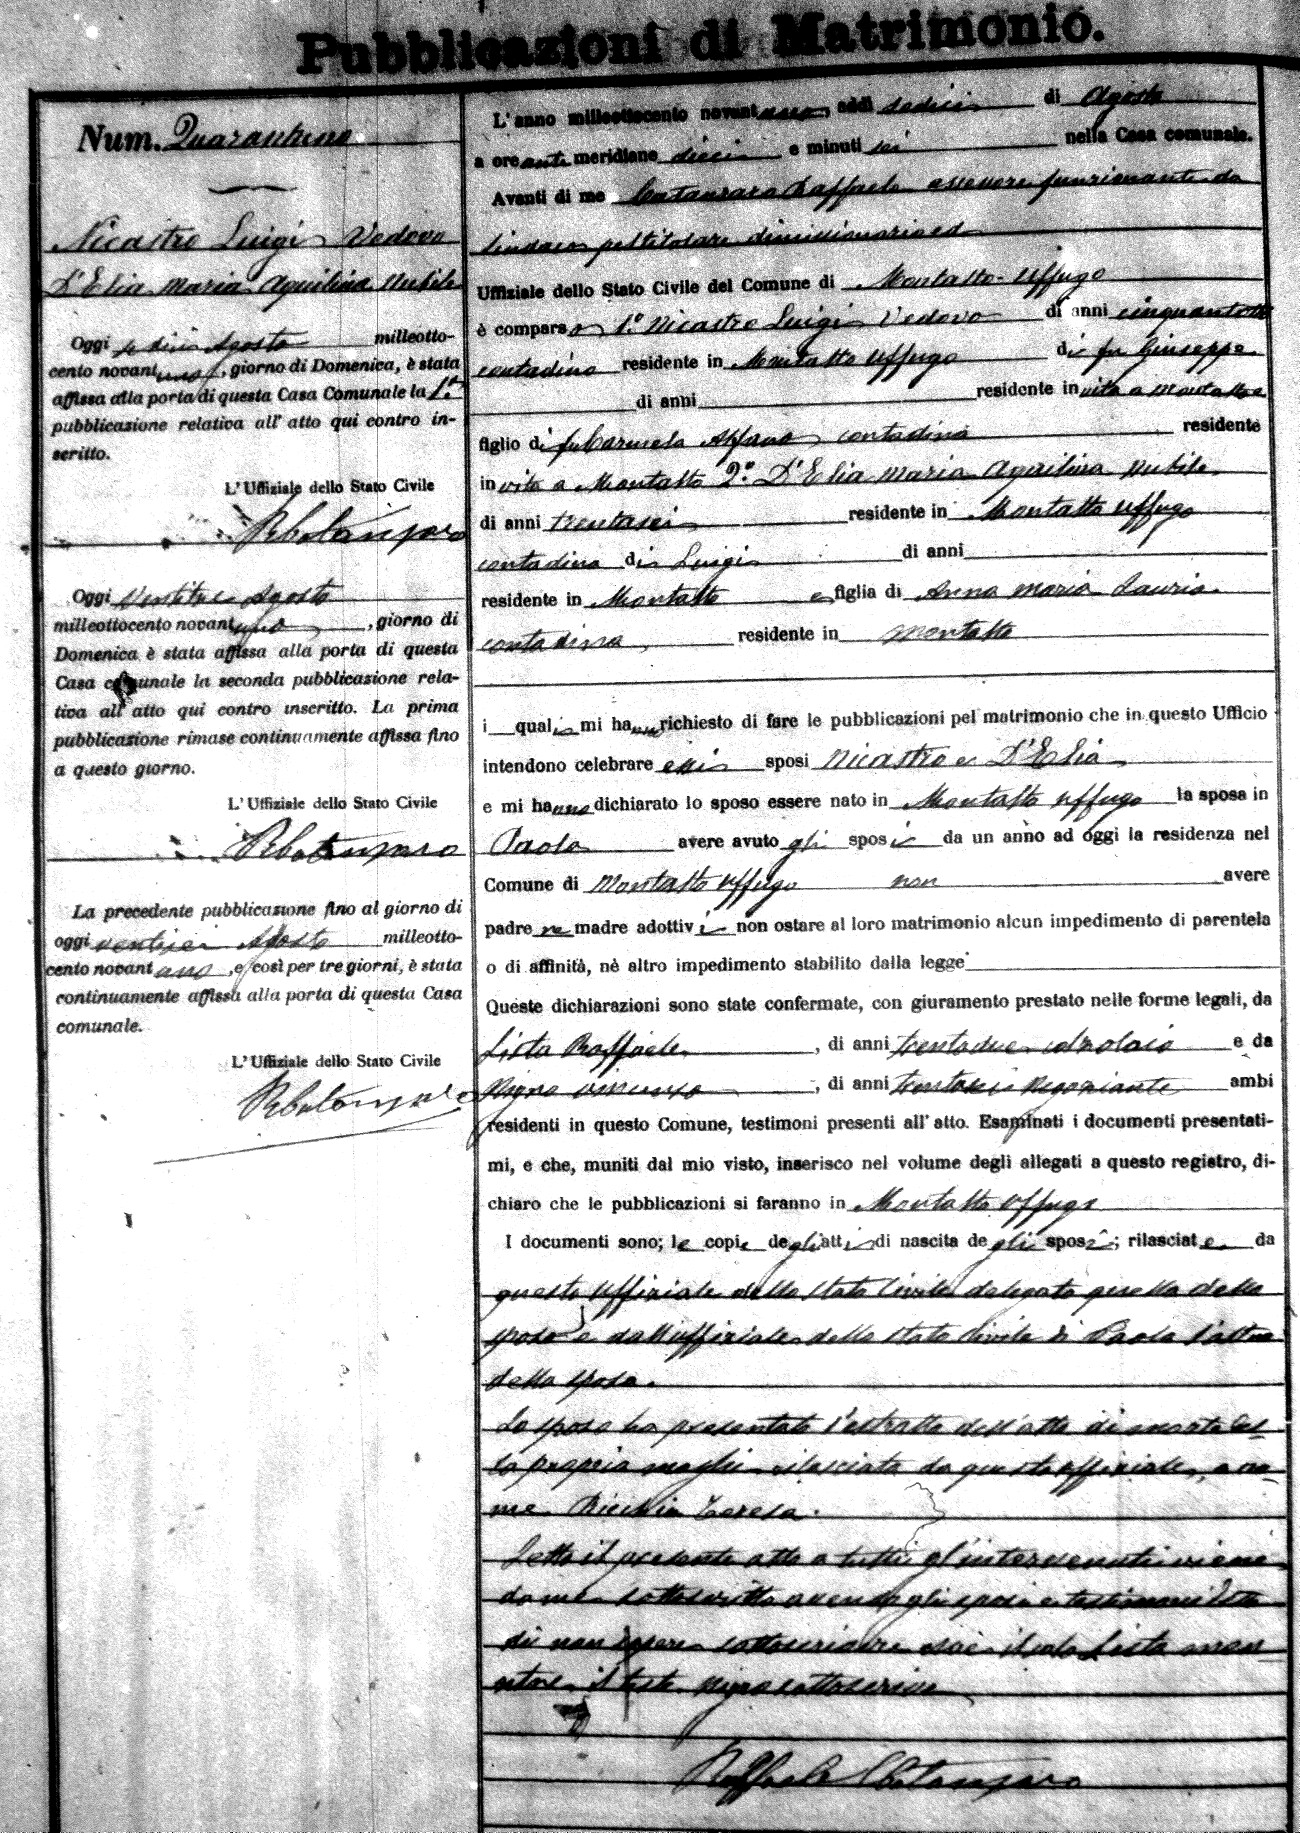 Pubblicazioni di Matrimonio.
Num. Quarantuno
Nicastro Luigi Vedovo
D'Elia Maria Aquilina Nubile
Oggi sedici Agosto milleotto-
cento novantuno, giorno di Domenica, è stata
affissa alla porta di questa Casa Comunale la 1.ª
pubblicazione relativa all' atto qui contro in-
scritto.
L' Uffiziale dello Stato Civile
RCatanzaro
Oggi ventitre Agosto
milleottocento novantuno, giorno di
Domenica è stata affissa alla porta di questa
Casa comunale la seconda pubblicazione rela-
tiva all' atto qui contro inscritto. La prima
pubblicazione rimase continuamente affissa fino
a questo giorno.
L' Uffiziale dello Stato Civile
RCatanzaro
La precedente pubblicazione fino al giorno di
oggi ventisei Agosto milleotto-
cento novantuno, e così per tre giorni, è stata
continuamente affissa alla porta di questa Casa
comunale.
L' Uffiziale dello Stato Civile
RCatanzaro
L' anno milleottocento novantuno, addì sedici di Agosto
a ore antimeridiane dieci e minuti sei nella Casa comunale.
Avanti di me Catanzaro Raffaele assessore funzionante da
Sindaco pel titolare dimissionario ed
Uffiziale dello Stato Civile del Comune di Montalto-Uffugo
è comparso 1.º Nicastro Luigi Vedovo di anni cinquantotto
contadino residente in Montalto Uffugo di fu Giuseppe
di anni residente in vita a Montalto e
figlio di fu Carmela contadina residente
in vita a Montalto 2.º D'Elia Maria Aquilina Nubile
di anni trentasei residente in Montalto Uffugo
contadina di Luigi di anni
residente in Montalto e figlia di Anna Maria Lauria
contadina residente in Montalto
i quali mi hanno richiesto di fare le pubblicazioni pel matrimonio che in questo Ufficio
intendono celebrare essi sposi Nicastro e D'Elia
e mi hanno dichiarato lo sposo essere nato in Montalto Uffugo la sposa in
Paola avere avuto gli sposi da un anno ad oggi la residenza nel
Comune di Montalto Uffugo non avere
padre ne madre adottivi non ostare al loro matrimonio alcun impedimento di parentela
o di affinità, nè altro impedimento stabilito dalla legge
Queste dichiarazioni sono state confermate, con giuramento prestato nelle forme legali, da
Lista Raffaele, di anni trentadue colzolaio e da
Nigro Vincenzo, di anni trentasei Negoziante ambi
residenti in questo Comune, testimoni presenti all' atto. Esaminati i documenti presentati-
mi, e che, muniti dal mio visto, inserisco nel volume degli allegati a questo registro, di-
chiaro che le pubblicazioni si faranno in Montalto Uffugo
I documenti sono; le copie degli atti di nascita degli sposi; rilasciate da
questo Uffiziale dello Stato Civile delegato quella dello
sposo e dall'uffiziale dello Stato Civile di Paola l'altra
della sposa.
Lo sposo ha presentato l'estratto dell'atto di morte del-
la propria moglie rilasciato da questo uffiziale, a no-
me Ricchio Teresa.
Letto il presente atto a tutti gl'intervenuti viene
da me sottoscritto avendo gli sposi e testimoni detto
di non sapere sottoscrivere cioè il solo Lista men-
tre il teste Nigro sottoscrive
Raffaele Catanzaro